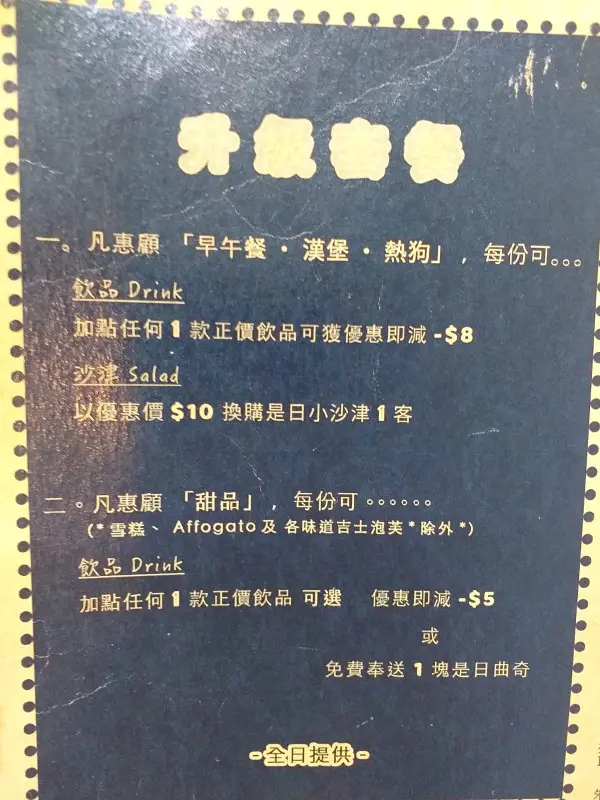 升級套餐
一。凡惠顧「早午餐・漢堡・熱狗」, 每份可。。。
飲品 Drink
加點任何 1 款正價飲品可獲優惠即減 -$8
沙津 Salad
以優惠價 $10 換購是日小沙津 1 客
二。凡惠顧「甜品」, 每份可。。。。。。
(*雪糕、Affogato 及 各味道吉士泡芙*除外*)
飲品 Drink
加點任何 1 款正價飲品 可選 優惠即減 -$5
或
免費奉送 1 塊是日曲奇
-全日提供-